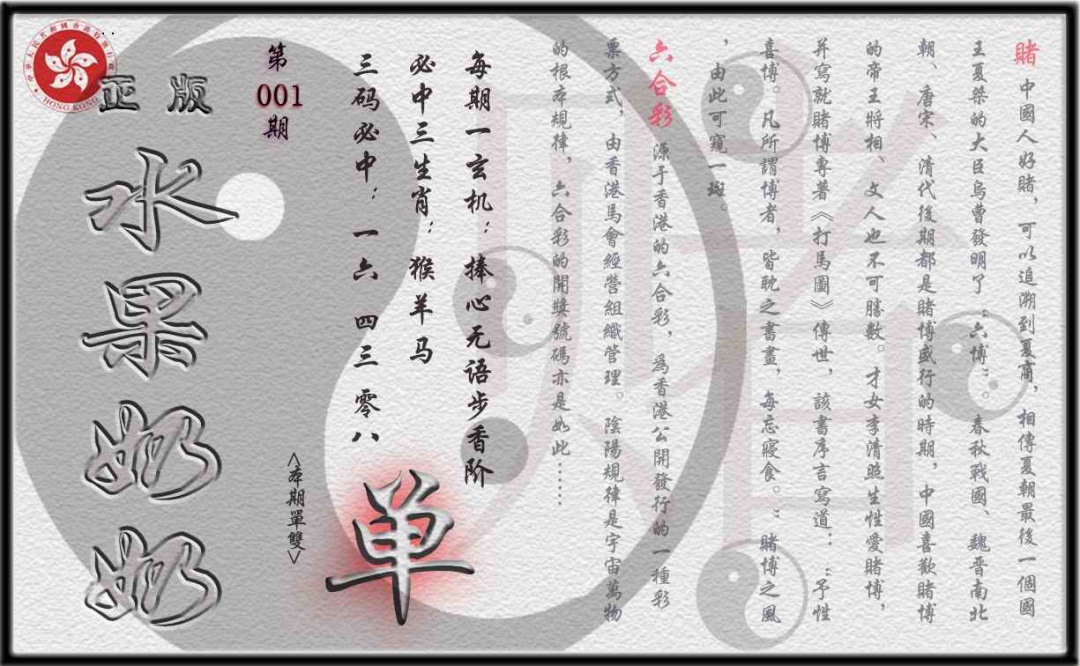 賭 中國人好賭，可以追溯到夏商，相傳夏朝最後一個國
王夏桀的大臣烏曹發明了“六博”。春秋戰國、魏晉南北
朝、唐宋、清代後期都是賭博盛行的時期，中國喜歡賭博
的帝王將相、文人也不可勝數。才女李清照生性愛賭博，
并寫就賭博專著《打馬圖》傳世，該書序言寫道：“予性
喜博。凡所謂博者，皆耽之書畫，每忘寢食。”賭博之風
，由此可窺一斑。
六合彩 源于香港的六合彩，為香港公開發行的一種彩
票方式，由香港馬會經營組織管理。陰陽規律是宇宙萬物
的根本規律，六合彩的開獎號碼亦是如此……
每期一玄机：捧心无语步香阶
必中三生肖：猴羊马
三码必中：一六 四三 零八
单
<本期單雙>
第
001
期
正版
水果奶奶
HONG KONG